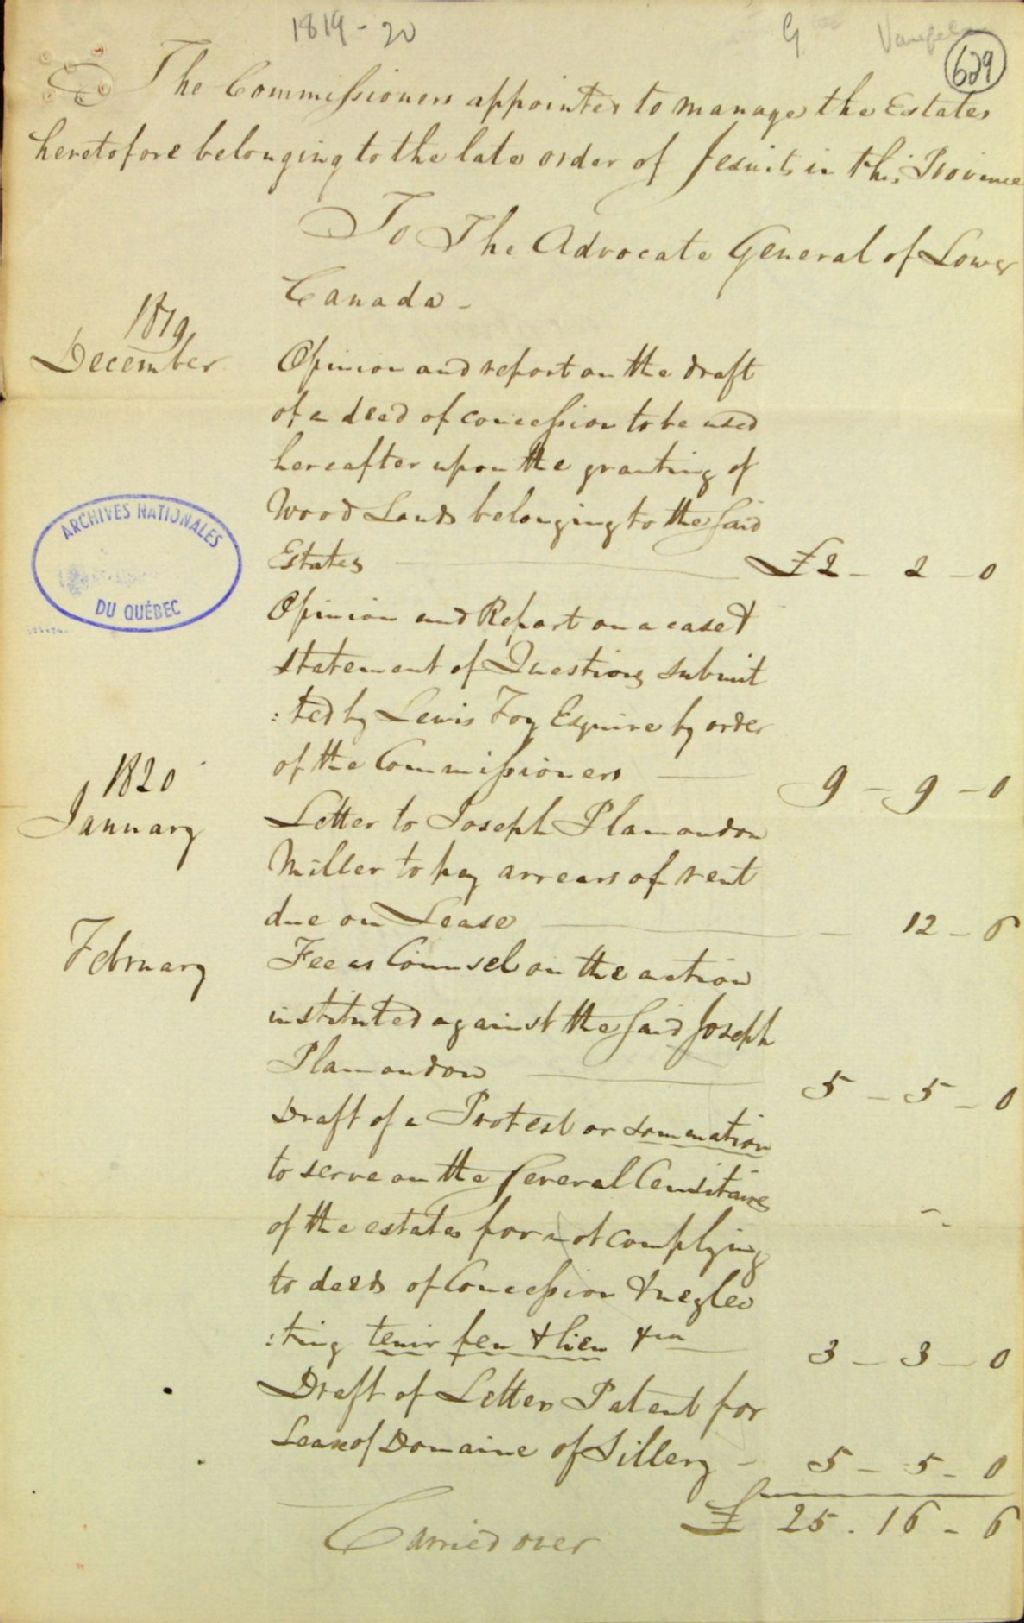 1819-20
629
The Commissioners appointed to manage the Estates
heretofore belonging to the late order of Jesuits in this Province
To The Advocate General of Lower
Canada -
1819
December
Opinion and report on the draft
of a deed of concession to be used
hereafter upon the granting of
Wood Lands belonging to the said
Estates £2 - 2 - 0
ARCHIVES NATIONALES
DU QUÉBEC
Opinion and Report on a case &
statement of Questions submit
:ted by Lewis Foy Esquire by order
of the Commissioners 9 - 9 - 0
1820
January
Letter to Joseph Plamondon
Miller to pay arrears of rent
due on Lease - 12 - 6
February
Fee as Counsel on the action
instituted against the said Joseph
Plamondon 5 - 5 - 0
Draft of a Protest or sommation
to serve on the several Censitaires
of the estates for not complying
to deeds of Concession & neglec
:ting tenir feu & lieu &ca 3 - 3 - 0
Draft of Letters Patent for
Lease of Domaine of Sillery - 5 - 5 - 0
£ 25 . 16 - 6
Carried over